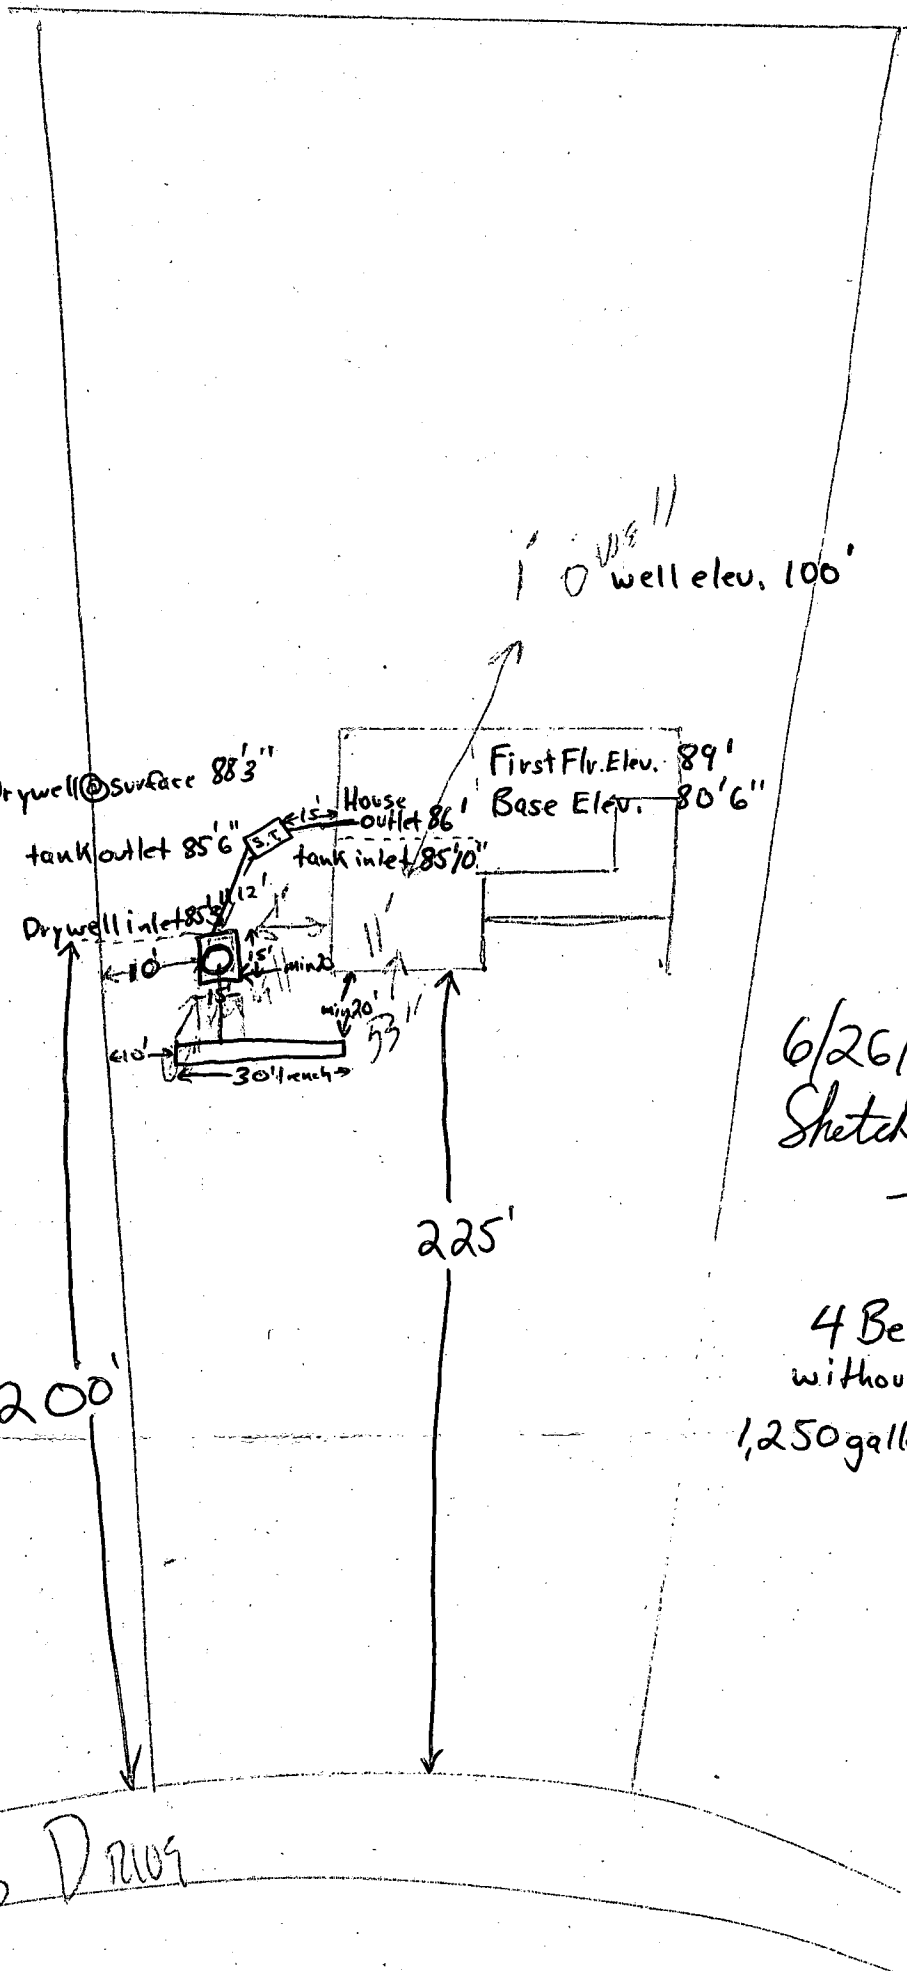 well
well elev. 100'
First Flr. Elev. 89'
Base Elev. 80'6"
rywell @ surface 88'3"
15'
House
outlet 86'
tank outlet 85'6"
S.T.
tank inlet 85'10"
12'
Drywell inlet 85'
10'
15'
min 20'
11'
15'
min 20'
53"
10'
30' trench
6/26/
Sketch
225'
4 Be
withou
200'
1,250 gall
Drive